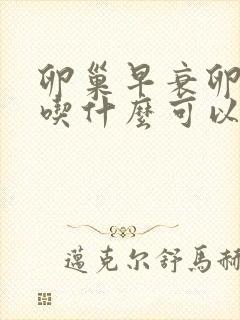 卵巢早衰卵
喫什麼可以
邁克尔舒馬赫